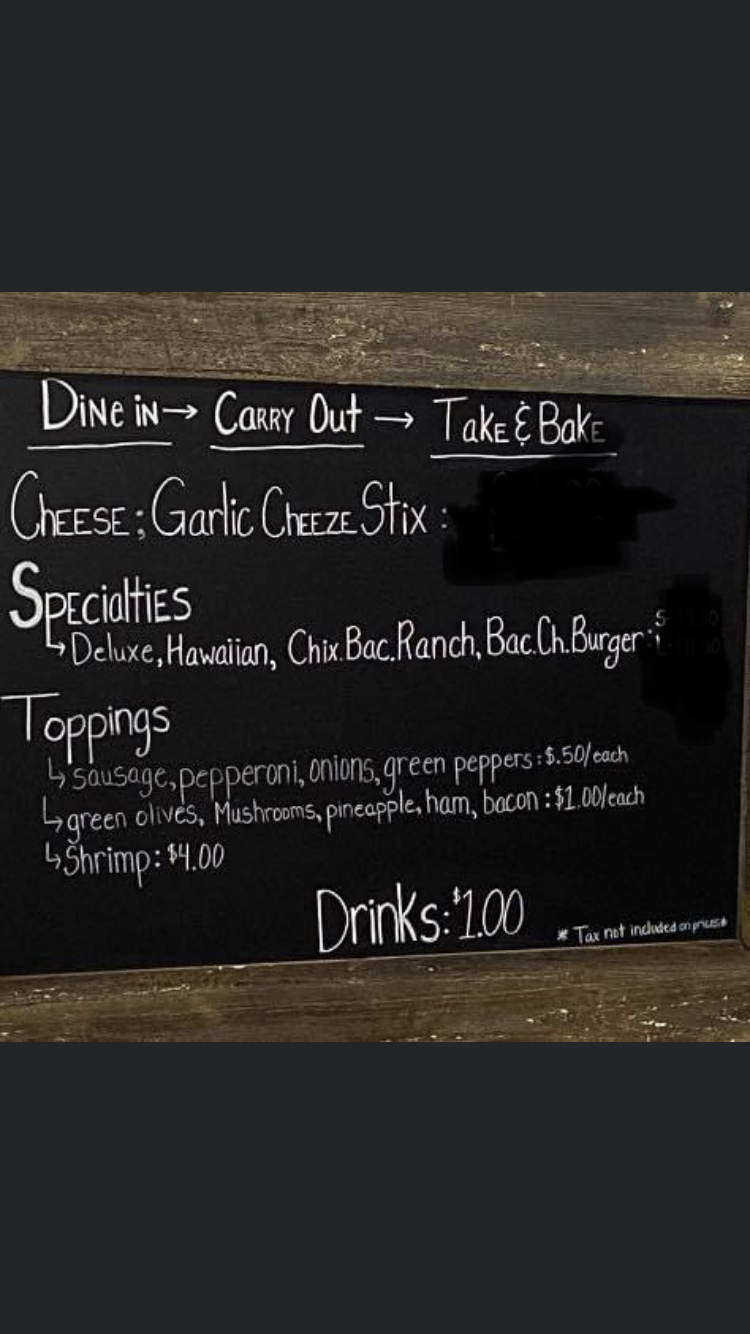 Dine in → Carry Out → Take & Bake
Cheese; Garlic Cheeze Stix :
Specialties
↳ Deluxe, Hawaiian, Chix.Bac.Ranch, Bac.Ch.Burger:
Toppings
↳ sausage, pepperoni, onions, green peppers: $.50/each
↳ green olives, Mushrooms, pineapple, ham, bacon: $1.00/each
↳ Shrimp: $4.00
Drinks: $1.00
* Tax not included on prices*